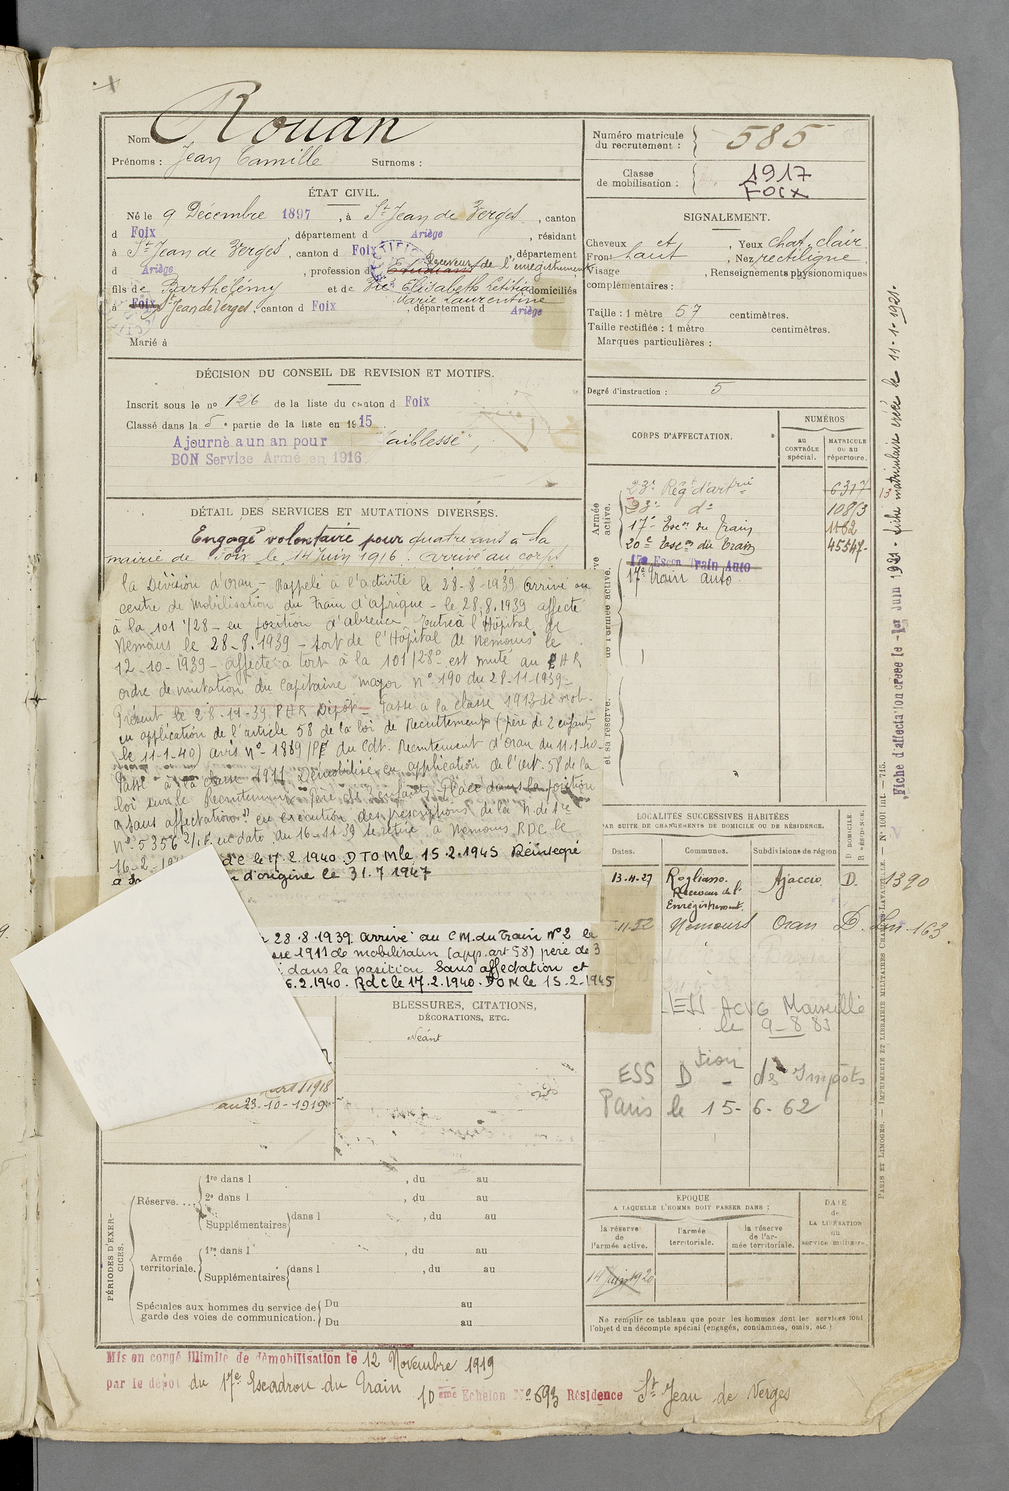 Nom Rouan
Prénoms : Jean Camille Surnoms :
Numéro matricule du recrutement : 585
Classe de mobilisation : 1917 FOIX
ÉTAT CIVIL.
Né le 9 Décembre 1897, à St Jean de Verges, canton
d Foix, département d Ariège, résidant
à St Jean de Verges, canton d Foix, département
d Ariège, profession d Etudiant Receveur de l'enregistrement
fils de Barthélemy et de Elisabeth Letitia Marie Laurentine domiciliés
à Foix St Jean de Verges, canton d Foix, département d Ariège
Marié à
SIGNALEMENT.
Cheveux et, Yeux chat. clair
Front haut, Nez rectiligne
Visage, Renseignements physionomiques
complémentaires :
Taille : 1 mètre 57 centimètres.
Taille rectifiée : 1 mètre centimètres.
Marques particulières :
Degré d'instruction : 5
DÉCISION DU CONSEIL DE REVISION ET MOTIFS.
Inscrit sous le no 126 de la liste du canton d Foix
Classé dans la 5e partie de la liste en 1915
Ajourné a un an pour faiblesse,
BON Service Armé en 1916
CORPS D'AFFECTATION.
NUMÉROS
au CONTRÔLE spécial.
MATRICULE ou au répertoire.
Armée active.
23e Régt d'artrie 6317
23e do 10863
17e Escon du Train 1162
20e Escon du Train 45547
17e Escon Train Auto
17e train auto
de l'armée active.
et sa réserve.
DÉTAIL DES SERVICES ET MUTATIONS DIVERSES.
Engagé volontaire pour quatre ans à la
mairie de Foix le 14 Juin 1916. Arrivé au corps
la Division d'Oran - Rappelé à l'activité le 28-8-1939 Arrivé au
centre de Mobilisation du Train d'afrique - le 28.8.1939 affecté
à la 101/28 - en position d'absence. Entré à l'Hôpital de
Nemours le 28-8-1939 - sort de l'Hôpital de Nemours le
12-10-1939 - Affecté à tort à la 101/28e est muté au PHR
ordre de mutation du Capitaine major no 190 du 28-11-1939 -
Présent le 28-11-39 PHR Dépôt - Passé à la classe 1913 de mob.
en application de l'article 58 de la loi de Recrutement (père de 2 enfants
le 11-1-40) avis No 1819/PE du Cdt. Recrutement d'Oran du 11-1-40 -
Passé à la classe 1911 Démobilisé en application de l'art. 58 de la
loi sur le Recrutement Père de 3 enfants Placé dans la position
"sans affectation" en exécution des prescriptions de la N. de Sce
No 5356 en date du 16-11-39 Se retire à Nemours RDC le
16-2- RdC le 17.2.1940 DTOM le 15.2.1945 Réintégré
d'origine le 31.7.1947
28.8.1939. Arrivé au CM. du Train No 2 le
1911 de mobilisation (app. art 58) père de 3
dans la position Sans affectation et
6.2.1940. RdC le 17.2.1940. DTOM le 15-2-1945
BLESSURES, CITATIONS,
DÉCORATIONS, ETC.
Néant
1918
au 23-10-1919
LOCALITÉS SUCCESSIVES HABITÉES
PAR SUITE DE CHANGEMENTS DE DOMICILE OU DE RÉSIDENCE.
Dates. Communes. Subdivisions de région. D DOMICILE. R RÉSIDENCE.
13.11.27 Rogliano. Receveur de l'Enregistrement Ajaccio D. 1390
11.32 Nemours Oran D. 163
ESS ACVG Marseille
le 9-8 83
ESS Dtion des Impôts
Paris le 15-6-62
PÉRIODES D'EXERCICES.
Réserve....
1re dans l, du au
2e dans l, du au
Supplémentaires dans l, du au
Armée territoriale.
1re dans l, du au
Supplémentaires dans l, du au
Spéciales aux hommes du service de garde des voies de communication.
Du au
Du au
EPOQUE
A LAQUELLE L'HOMME DOIT PASSER DANS :
la réserve de l'armée active.
l'armée territoriale.
la réserve de l'armée territoriale.
DATE de LA LIBÉRATION du service militaire.
14 Juin 1920
Ne remplir ce tableau que pour les hommes dont les services font
l'objet d'un décompte spécial (engagés, condamnés, omis, etc.)
Mis en congé illimité de démobilisation le 12 Novembre 1919
par le dépôt du 17e Escadron du Train 10ème Echelon No 693 Résidence St Jean de Verges
Fiche matriculaire créée le 11-1-1921.
Fiche d'affectation créée le 1er Juin 1921
PARIS ET LIMOGES. — IMPRIMERIE ET LIBRAIRIE MILITAIRES CHARLES-LAVAUZELLE. — No 1001 int. — 715.